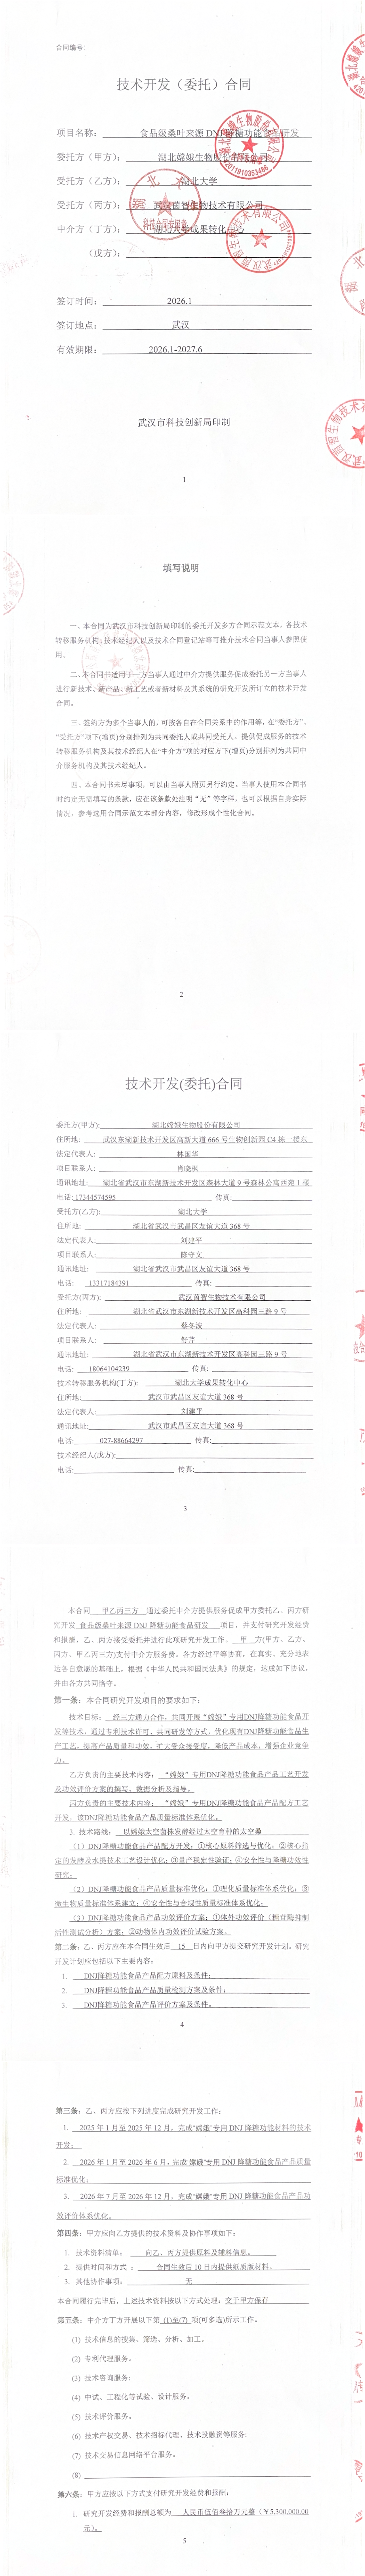 合同编号:
技术开发（委托）合同
项目名称： 食品级桑叶来源 DNJ 降糖功能食品研发
委托方（甲方）： 湖北嫦娥生物股份有限公司
受托方（乙方）： 湖北大学
受托方（丙方）： 武汉茵智生物技术有限公司
中介方（丁方）： 湖北大学成果转化中心
（戊方）：
签订时间： 2026.1
签订地点： 武汉
有效期限： 2026.1-2027.6
武汉市科技创新局印制
1
填写说明
一、本合同为武汉市科技创新局印制的委托开发多方合同示范文本，各技术
转移服务机构、技术经纪人以及技术合同登记站等可推介技术合同当事人参照使
用。
二、本合同书适用于一方当事人通过中介方提供服务促成委托另一方当事人
进行新技术、新产品、新工艺或者新材料及其系统的研究开发所订立的技术开发
合同。
三、签约方为多个当事人的，可按各自在合同关系中的作用等，在“委托方”、
“受托方”项下(增页)分别排列为共同委托人或共同受托人。提供促成服务的技术
转移服务机构及其技术经纪人在“中介方”项的对应方下(增页)分别排列为共同中
介服务机构及其技术经纪人。
四、本合同书未尽事项，可以由当事人附页另行约定。当事人使用本合同书
时约定无需填写的条款，应在该条款处注明“无”等字样，也可以根据自身实际
情况，参考选用合同示范文本部分内容，修改形成个性化合同。
2
技术开发(委托)合同
委托方(甲方): 湖北嫦娥生物股份有限公司
住所地: 武汉东湖新技术开发区高新大道 666 号生物创新园 C4 栋一楼东
法定代表人: 林国华
项目联系人: 肖晓枫
通讯地址: 湖北省武汉市东湖新技术开发区森林大道 9 号森林公寓西苑 1 楼
电话: 17344574595 传真:
受托方(乙方): 湖北大学
住所地: 湖北省武汉市武昌区友谊大道 368 号
法定代表人: 刘建平
项目联系人: 陈守文
通讯地址: 湖北省武汉市武昌区友谊大道 368 号
电话: 13317184391 传真:
受托方(丙方): 武汉茵智生物技术有限公司
住所地: 湖北省武汉市东湖新技术开发区高科园三路 9 号
法定代表人: 蔡冬波
项目联系人: 舒芹
通讯地址: 湖北省武汉市东湖新技术开发区高科园三路 9 号
电话: 18064104239 传真:
技术转移服务机构(丁方): 湖北大学成果转化中心
住所地: 武汉市武昌区友谊大道 368 号
法定代表人: 刘建平
通讯地址: 武汉市武昌区友谊大道 368 号
电话: 027-88664297 传真:
技术经纪人(戊方):
电话: 传真:
3
本合同 甲乙丙三方 通过委托中介方提供服务促成甲方委托乙、丙方研
究开发 食品级桑叶来源 DNJ 降糖功能食品研发 项目，并支付研究开发经费
和报酬，乙、丙方接受委托并进行此项研究开发工作， 甲 方(甲方、乙方、
丙方、甲乙丙三方)支付中介方服务费，各方经过平等协商，在真实、充分地表
达各自意愿的基础上，根据《中华人民共和国民法典》的规定，达成如下协议，
并由各方共同恪守。
第一条：本合同研究开发项目的要求如下：
技术目标： 经三方通力合作，共同开展“嫦娥”专用DNJ降糖功能食品开
发等技术。通过专利技术许可、共同研发等方式，优化现有DNJ降糖功能食品生
产工艺，提高产品质量和功效，扩大受众接受度，降低产品成本，增强企业竞争
力。
乙方负责的主要技术内容： “嫦娥”专用DNJ降糖功能食品产品工艺开发
及功效评价方案的撰写、数据分析及指导。
丙方负责的主要技术内容： “嫦娥”专用DNJ降糖功能食品产品配方工艺
开发，该DNJ降糖功能食品产品质量标准体系优化。
3. 技术路线： 以嫦娥太空菌株发酵经过太空育种的太空桑
（1）DNJ降糖功能食品产品配方开发：①核心原料筛选与优化；②核心指
定的发酵及水提技术工艺设计优化；③量产稳定性验证；④安全性与降糖功效性
研究；
（2）DNJ降糖功能食品产品质量标准优化：①理化质量标准体系优化；③
微生物质量标准体系建立；④安全性与合规性质量标准体系优化；
（3）DNJ降糖功能食品产品功效评价方案：①体外功效评价（糖苷酶抑制
活性测试分析）方案；②动物体内功效评价试验方案。
第二条：乙、丙方应在本合同生效后 15 日内向甲方提交研究开发计划。研究
开发计划应包括以下主要内容：
1. DNJ降糖功能食品产品配方原料及条件；
2. DNJ降糖功能食品产品质量检测方案及条件；
3. DNJ降糖功能食品产品评价方案及条件。
4
第三条：乙、丙方应按下列进度完成研究开发工作：
1. 2025 年 1 月至 2025 年 12 月，完成“嫦娥”专用 DNJ 降糖功能材料的技术
开发；
2. 2026 年 1 月至 2026 年 6 月，完成“嫦娥”专用 DNJ 降糖功能食品产品质量
标准优化；
3. 2026 年 7 月至 2026 年 12 月，完成“嫦娥”专用 DNJ 降糖功能食品产品功
效评价体系优化。
第四条：甲方应向乙方提供的技术资料及协作事项如下：
1. 技术资料清单： 向乙、丙方提供原料及辅料信息。
2. 提供时间和方式 ： 合同生效后 10 日内提供纸质版材料。
3. 其他协作事项： 无
本合同履行完毕后，上述技术资料按以下方式处理：交于甲方保存
第五条：中介方丁方开展以下第 (1)至(7) 项(可多选)所示工作。
(1) 技术信息的搜集、筛选、分析、加工。
(2) 专利代理服务。
(3) 技术咨询服务;
(4) 中试、工程化等试验、设计服务。
(5) 技术评价服务。
(6) 技术产权交易、技术招标代理、技术投融资等服务;
(7) 技术交易信息网络平台服务。
(8)
第六条：甲方应按以下方式支付研究开发经费和报酬：
1. 研究开发经费和报酬总额为 人民币伍佰叁拾万元整（￥5,300,000.00
元）。
5